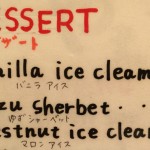 ESSERT
デザート
nilla ice cleam
バニラ アイス
zu sherbet ・・
ゆず シャーベット
estnut ice clear
マロン アイス